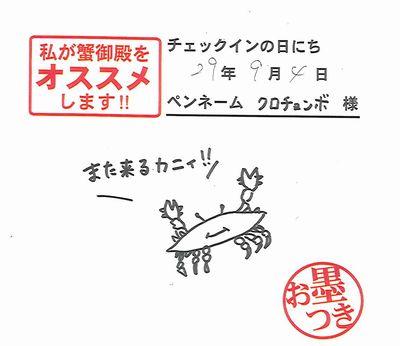 私が蟹御殿を
オススメ
します!!
チェックインの日にち
29年9月4日
ペンネーム クロチョンボ 様
また来るカニィ!!
お墨
つき